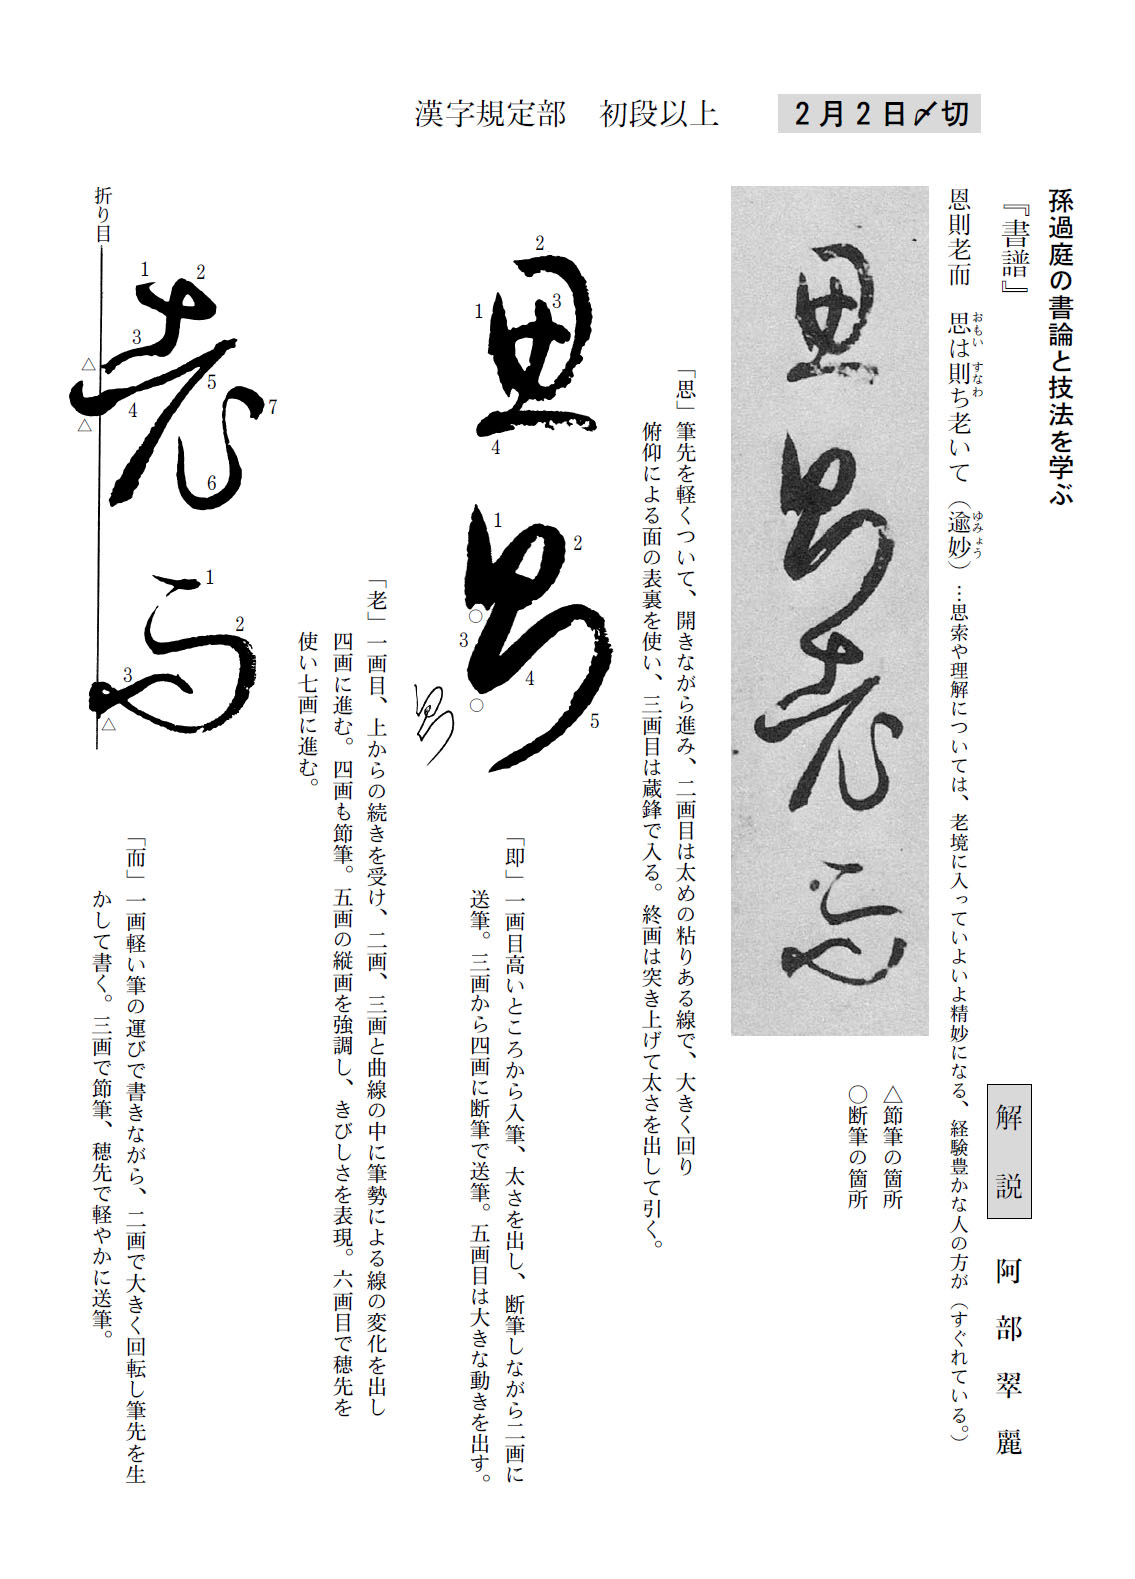 2月2日〆切
漢字規定部　初段以上
孫過庭の書論と技法を学ぶ
『書譜』
解説
阿部翠麗
恩則老而　思は則ち老いて（逾妙）…思索や理解については、老境に入っていよいよ精妙になる、経験豊かな人の方が（すぐれている。）
おもい　すなわ　ゆみょう
△節筆の箇所
○断筆の箇所
思則老而
「思」筆先を軽くついて、開きながら進み、二画目は太めの粘りある線で、大きく回り
俯仰による面の表裏を使い、三画目は蔵鋒で入る。終画は突き上げて太さを出して引く。
思
1 2 3 4
則
1 2 3 4 5
○ ○
「即」一画目高いところから入筆、太さを出し、断筆しながら二画に
送筆。三画から四画に断筆で送筆。五画目は大きな動きを出す。
「老」一画目、上からの続きを受け、二画、三画と曲線の中に筆勢による線の変化を出し
四画に進む。四画も節筆。五画の縦画を強調し、きびしさを表現。六画目で穂先を
使い七画に進む。
老
1 2 3 4 5 6 7
△ △
而
1 2 3
△
折り目
「而」一画軽い筆の運びで書きながら、二画で大きく回転し筆先を生
かして書く。三画で節筆、穂先で軽やかに送筆。